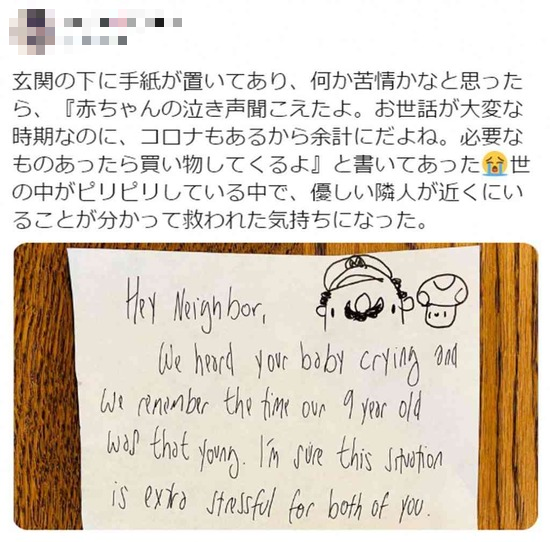 玄関の下に手紙が置いてあり、何か苦情かなと思った
ら、『赤ちゃんの泣き声聞こえたよ。お世話が大変な
時期なのに、コロナもあるから余計にだよね。必要な
ものあったら買い物してくるよ』と書いてあった😭世
の中がピリピリしている中で、優しい隣人が近くにい
ることが分かって救われた気持ちになった。
Hey Neighbor,
We heard your baby crying and
we remember the time our 9 year old
was that young. I'm sure this situation
is extra stressful for both of you.